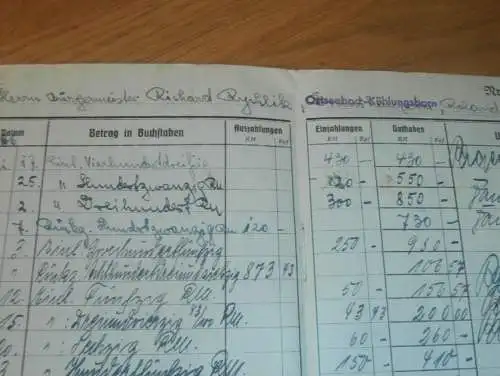 Herrn Bürgermeister Richard Rychlik, Ostseebad-Kühlungsborn,
Datum Betrag in Buchstaben Auszahlungen RM Rpf Einzahlungen RM Rpf Guthaben RM
17. Einl. Vierhundertdreißig 430 - 430 -
25. " Hundertzwanzig RM 120 - 550 -
2. " Dreihundert RM 300 - 850 -
7. Hundertzwanzig RM 120 - 730 -
3. Einl. Zweihundertfünfzig 250 - 980 -
873 43 106 57
12. Einl. Fünfzig RM. 50 - 156 57
15. " : Dreiundvierzig 43/100 RM. 43 43 200 00
20. " : Sechzig RM. 60 - 260 -
" Hundertfünfzig RM. 150 - 410 -